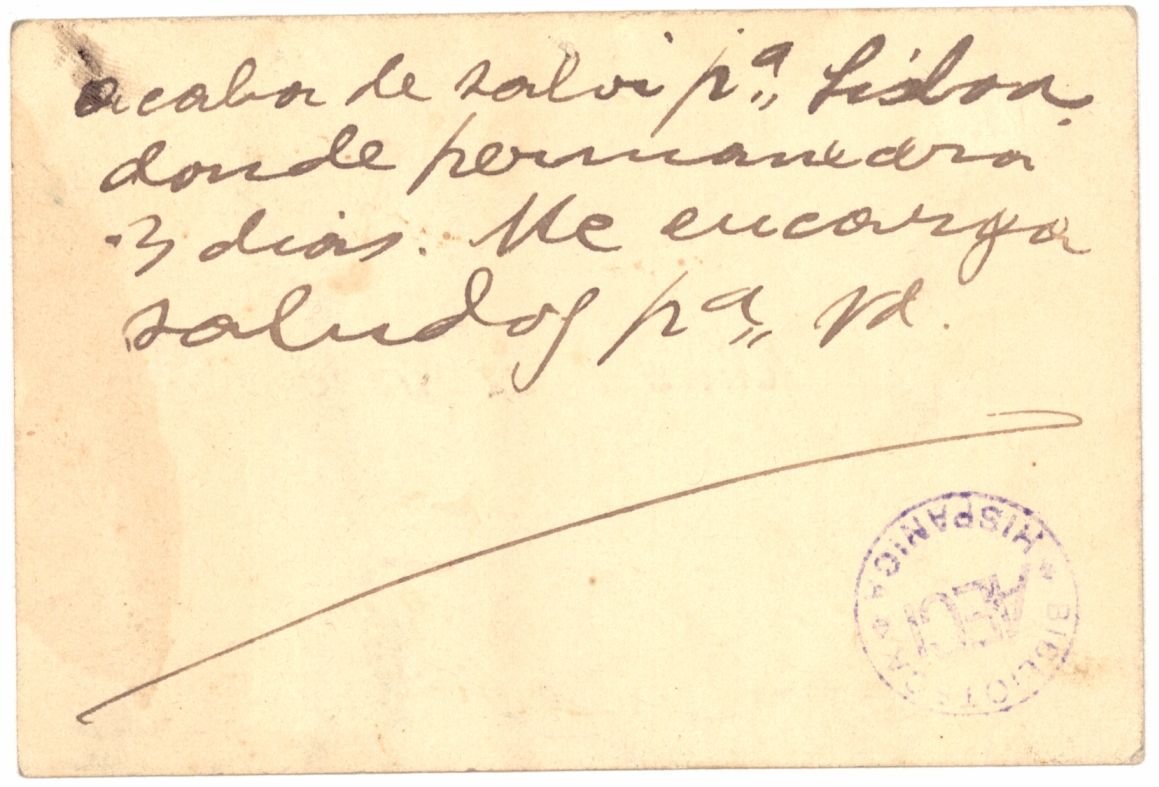 acaba de salir pª Lisboa,
donde permanecerá
3 dias. Me encarga
saludos pª Vd.
BIBLIOTECA HISPANICA
AECI